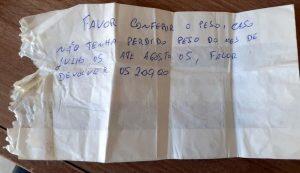 FAVOR CONFERIR O PESO, CASO
NÃO TENHA PERDIDO PESO DO MÊS DE
JULHO 05 ATÉ AGOSTO 05, FAVOR
DEVOLVER OS 200,00